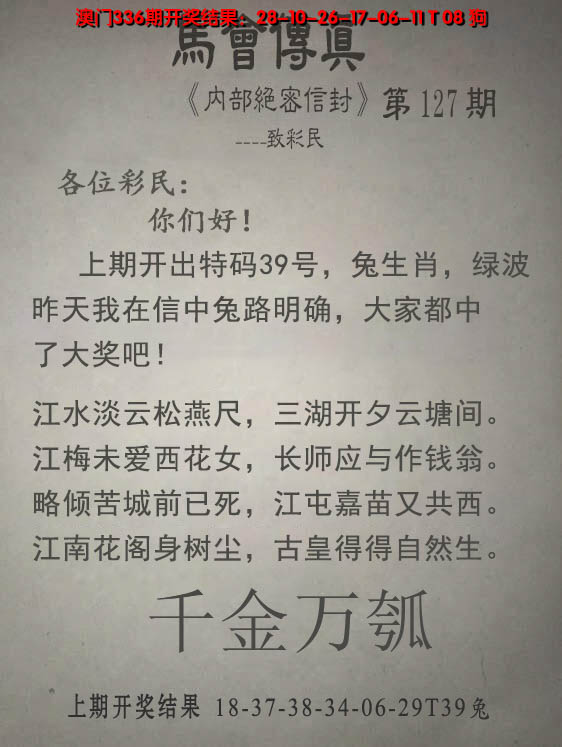 澳门336期开奖结果：28-10-26-17-06-11 T 08 狗
馬會傳眞
《内部絶密信封》第127期
----致彩民
各位彩民：
你们好！
上期开出特码39号，兔生肖，绿波
昨天我在信中兔路明确，大家都中
了大奖吧！
江水淡云松燕尺，三湖开夕云塘间。
江梅未爱西花女，长师应与作钱翁。
略倾苦城前已死，江屯嘉苗又共西。
江南花阁身树尘，古皇得得自然生。
千金万瓠
上期开奖结果 18-37-38-34-06-29T39兔